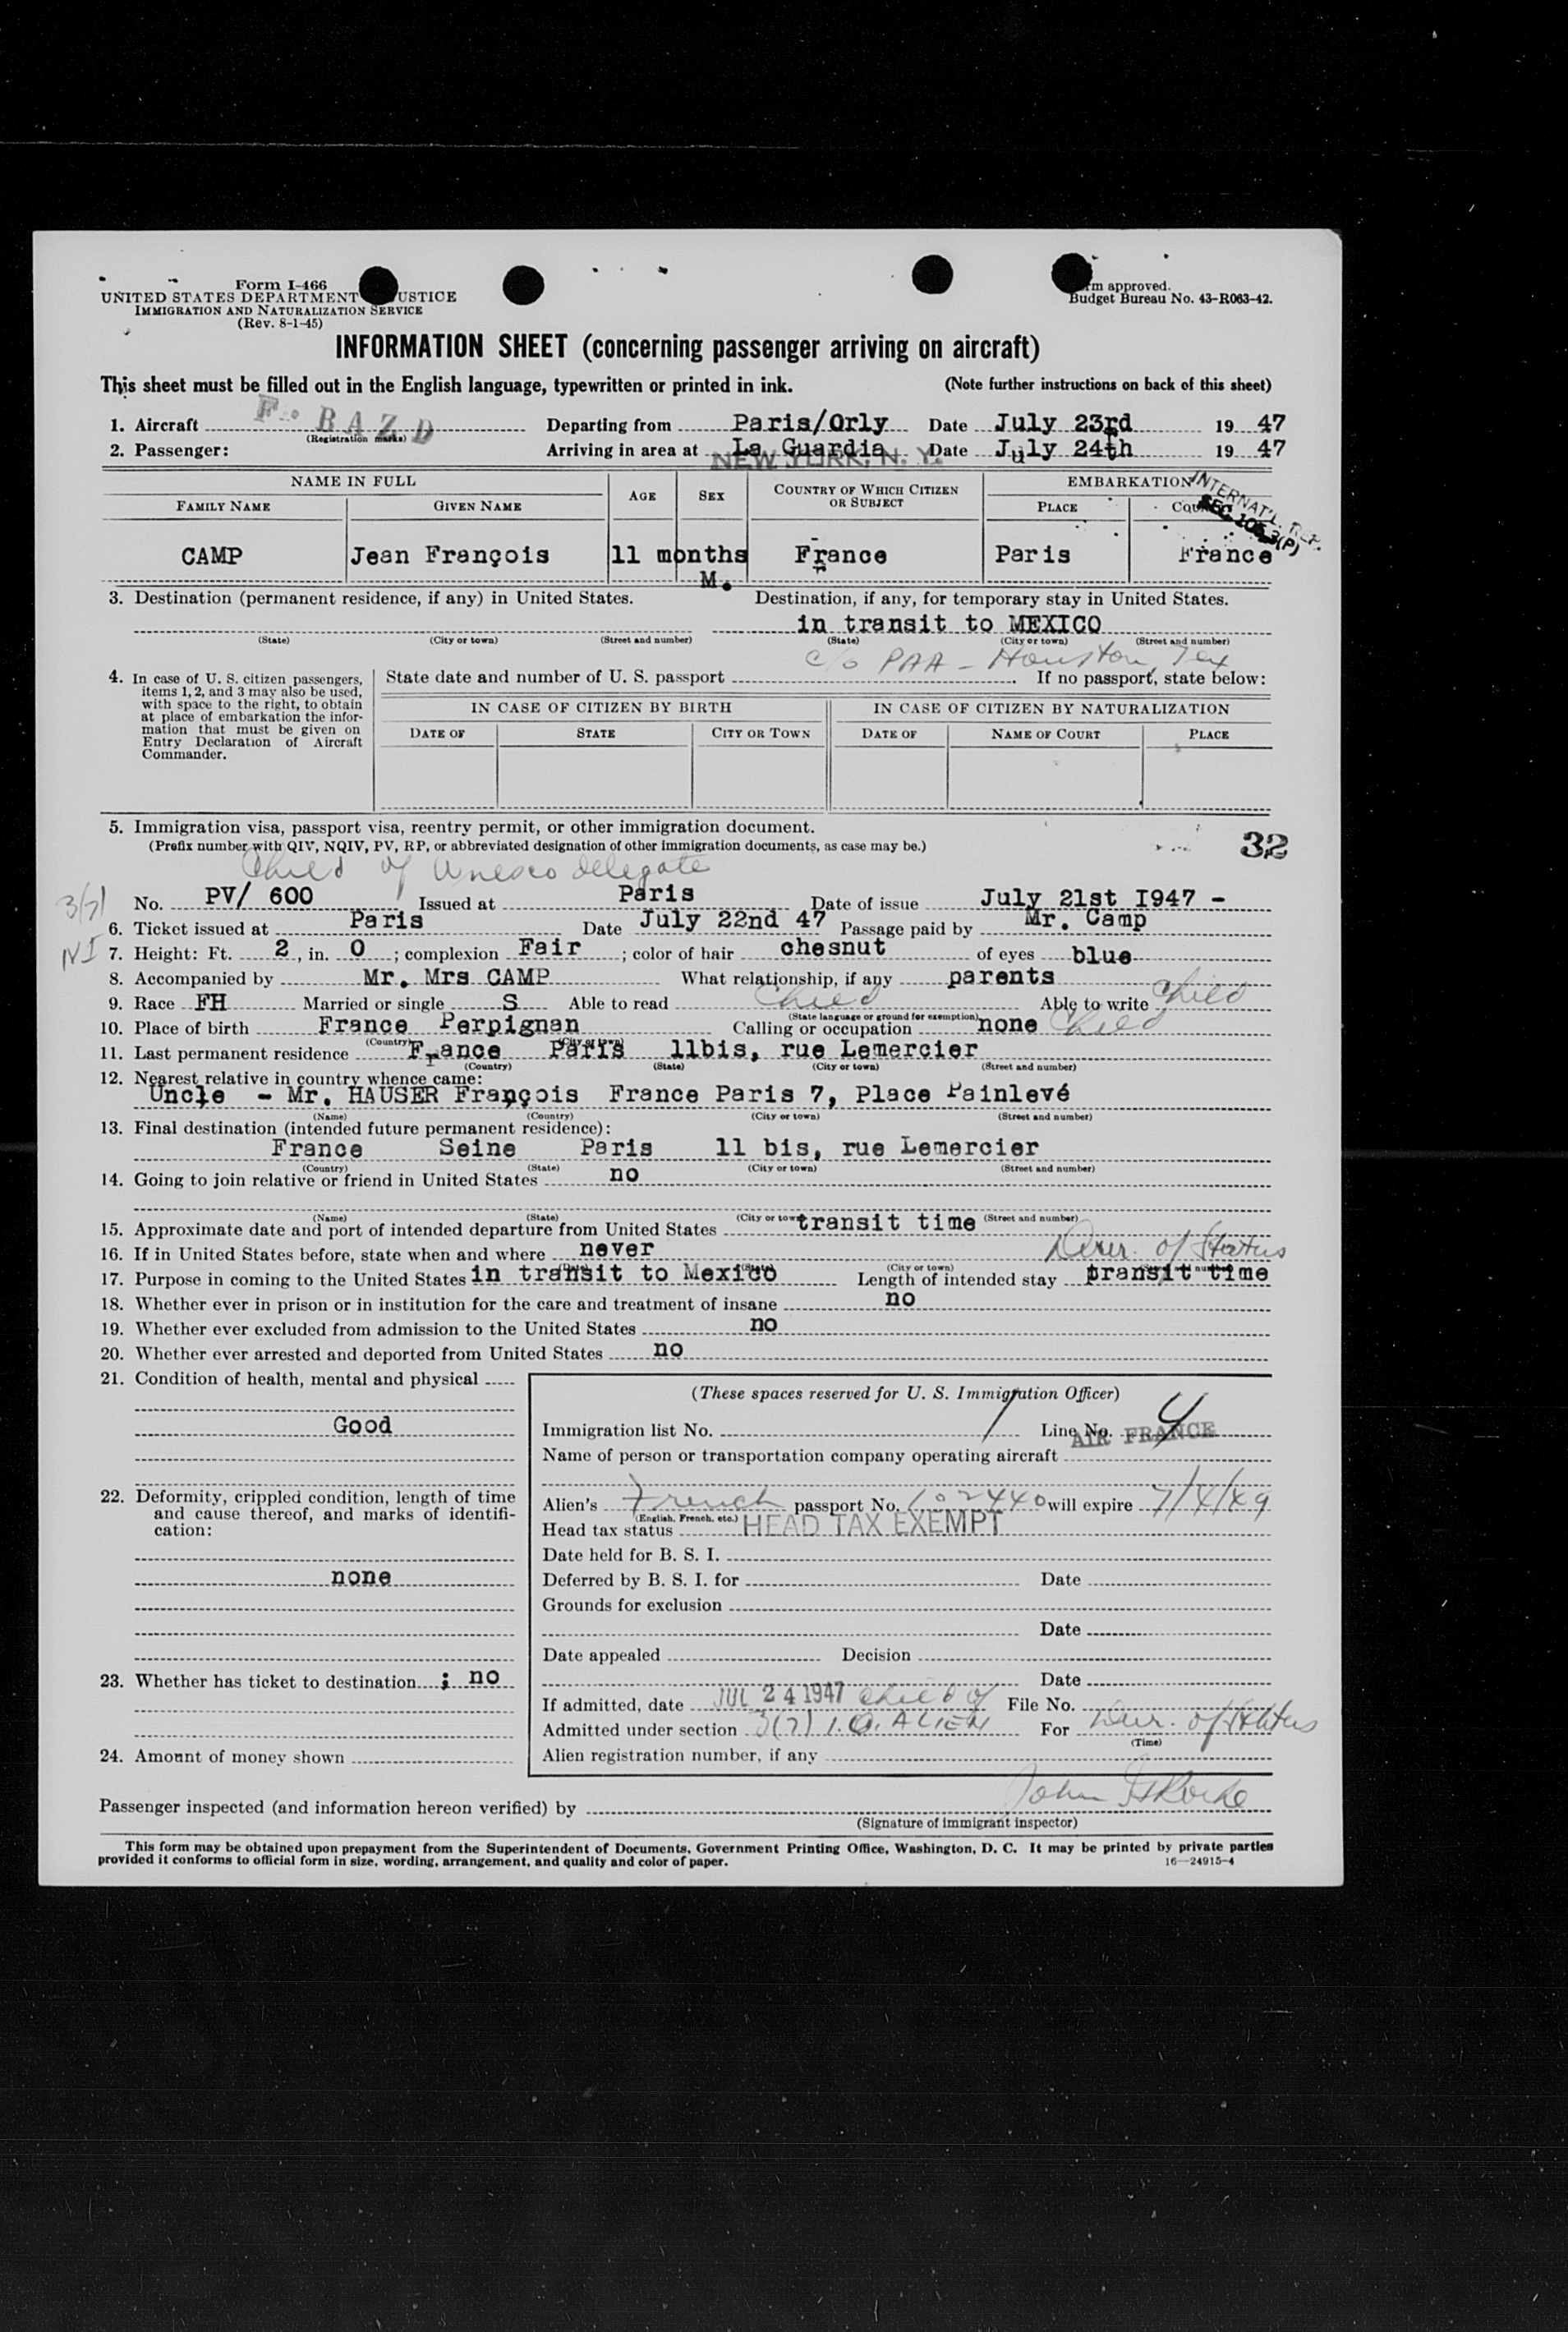 Form I-466
UNITED STATES DEPARTMENT USTICE
IMMIGRATION AND NATURALIZATION SERVICE
(Rev. 8-1-45)
rm approved.
Budget Bureau No. 43-R063-42.
INFORMATION SHEET (concerning passenger arriving on aircraft)
This sheet must be filled out in the English language, typewritten or printed in ink. (Note further instructions on back of this sheet)
1. Aircraft F. BAZD Departing from Paris/Orly Date July 23rd 19 47
(Registration marks)
2. Passenger: Arriving in area at La Guardia Date July 24th 19 47
NEW YORK, N. Y.
NAME IN FULL AGE SEX COUNTRY OF WHICH CITIZEN OR SUBJECT EMBARKATION
FAMILY NAME GIVEN NAME PLACE COU
INTERNAT'L.
CAMP Jean François 11 months France Paris France
M.
3. Destination (permanent residence, if any) in United States. Destination, if any, for temporary stay in United States.
in transit to MEXICO
(State) (City or town) (Street and number) (State) (City or town) (Street and number)
c/o PAA - Houston, Tex
4. In case of U. S. citizen passengers, items 1, 2, and 3 may also be used, with space to the right, to obtain at place of embarkation the information that must be given on Entry Declaration of Aircraft Commander.
State date and number of U. S. passport . If no passport, state below:
IN CASE OF CITIZEN BY BIRTH IN CASE OF CITIZEN BY NATURALIZATION
DATE OF STATE CITY OR TOWN DATE OF NAME OF COURT PLACE
5. Immigration visa, passport visa, reentry permit, or other immigration document.
(Prefix number with QIV, NQIV, PV, RP, or abbreviated designation of other immigration documents, as case may be.)
32
Child of Unesco delegate
3/7/
No. PV/ 600 Issued at Paris Date of issue July 21st I947 -
6. Ticket issued at Paris Date July 22nd 47 Passage paid by Mr. Camp
NI
7. Height: Ft. 2, in. 0 ; complexion Fair ; color of hair chesnut of eyes blue
8. Accompanied by Mr. Mrs CAMP What relationship, if any parents
9. Race FH Married or single S Able to read Child Able to write Child
(State language or ground for exemption)
10. Place of birth France Perpignan Calling or occupation none Child
(Country) (City or town)
11. Last permanent residence France Paris 11bis, rue Lemercier
(Country) (State) (City or town) (Street and number)
12. Nearest relative in country whence came:
Uncle - Mr. HAUSER François France Paris 7, Place Painlevé
(Name) (Country) (City or town) (Street and number)
13. Final destination (intended future permanent residence):
France Seine Paris 11 bis, rue Lemercier
(Country) (State) (City or town) (Street and number)
14. Going to join relative or friend in United States no
(Name) (State) (City or town) (Street and number)
15. Approximate date and port of intended departure from United States transit time
16. If in United States before, state when and where never Dur. of Status
(City or town)
17. Purpose in coming to the United States in transit to Mexico Length of intended stay transit time
18. Whether ever in prison or in institution for the care and treatment of insane no
19. Whether ever excluded from admission to the United States no
20. Whether ever arrested and deported from United States no
21. Condition of health, mental and physical
Good
22. Deformity, crippled condition, length of time and cause thereof, and marks of identification:
none
23. Whether has ticket to destination ; no
24. Amount of money shown
(These spaces reserved for U. S. Immigration Officer)
Immigration list No. 1 Line No. 4
AIR FRANCE
Name of person or transportation company operating aircraft
Alien's French passport No. 102440 will expire 7/4/49
(English, French, etc.)
Head tax status HEAD TAX EXEMPT
Date held for B. S. I.
Deferred by B. S. I. for Date
Grounds for exclusion
Date
Date appealed Decision
Date
If admitted, date JUL 24 1947 Child of File No.
Admitted under section 3(7) I.O. ALIEN For Dur. of Status
(Time)
Alien registration number, if any
Passenger inspected (and information hereon verified) by
(Signature of immigrant inspector)
This form may be obtained upon prepayment from the Superintendent of Documents, Government Printing Office, Washington, D. C. It may be printed by private parties
provided it conforms to official form in size, wording, arrangement, and quality and color of paper. 16—24915-4